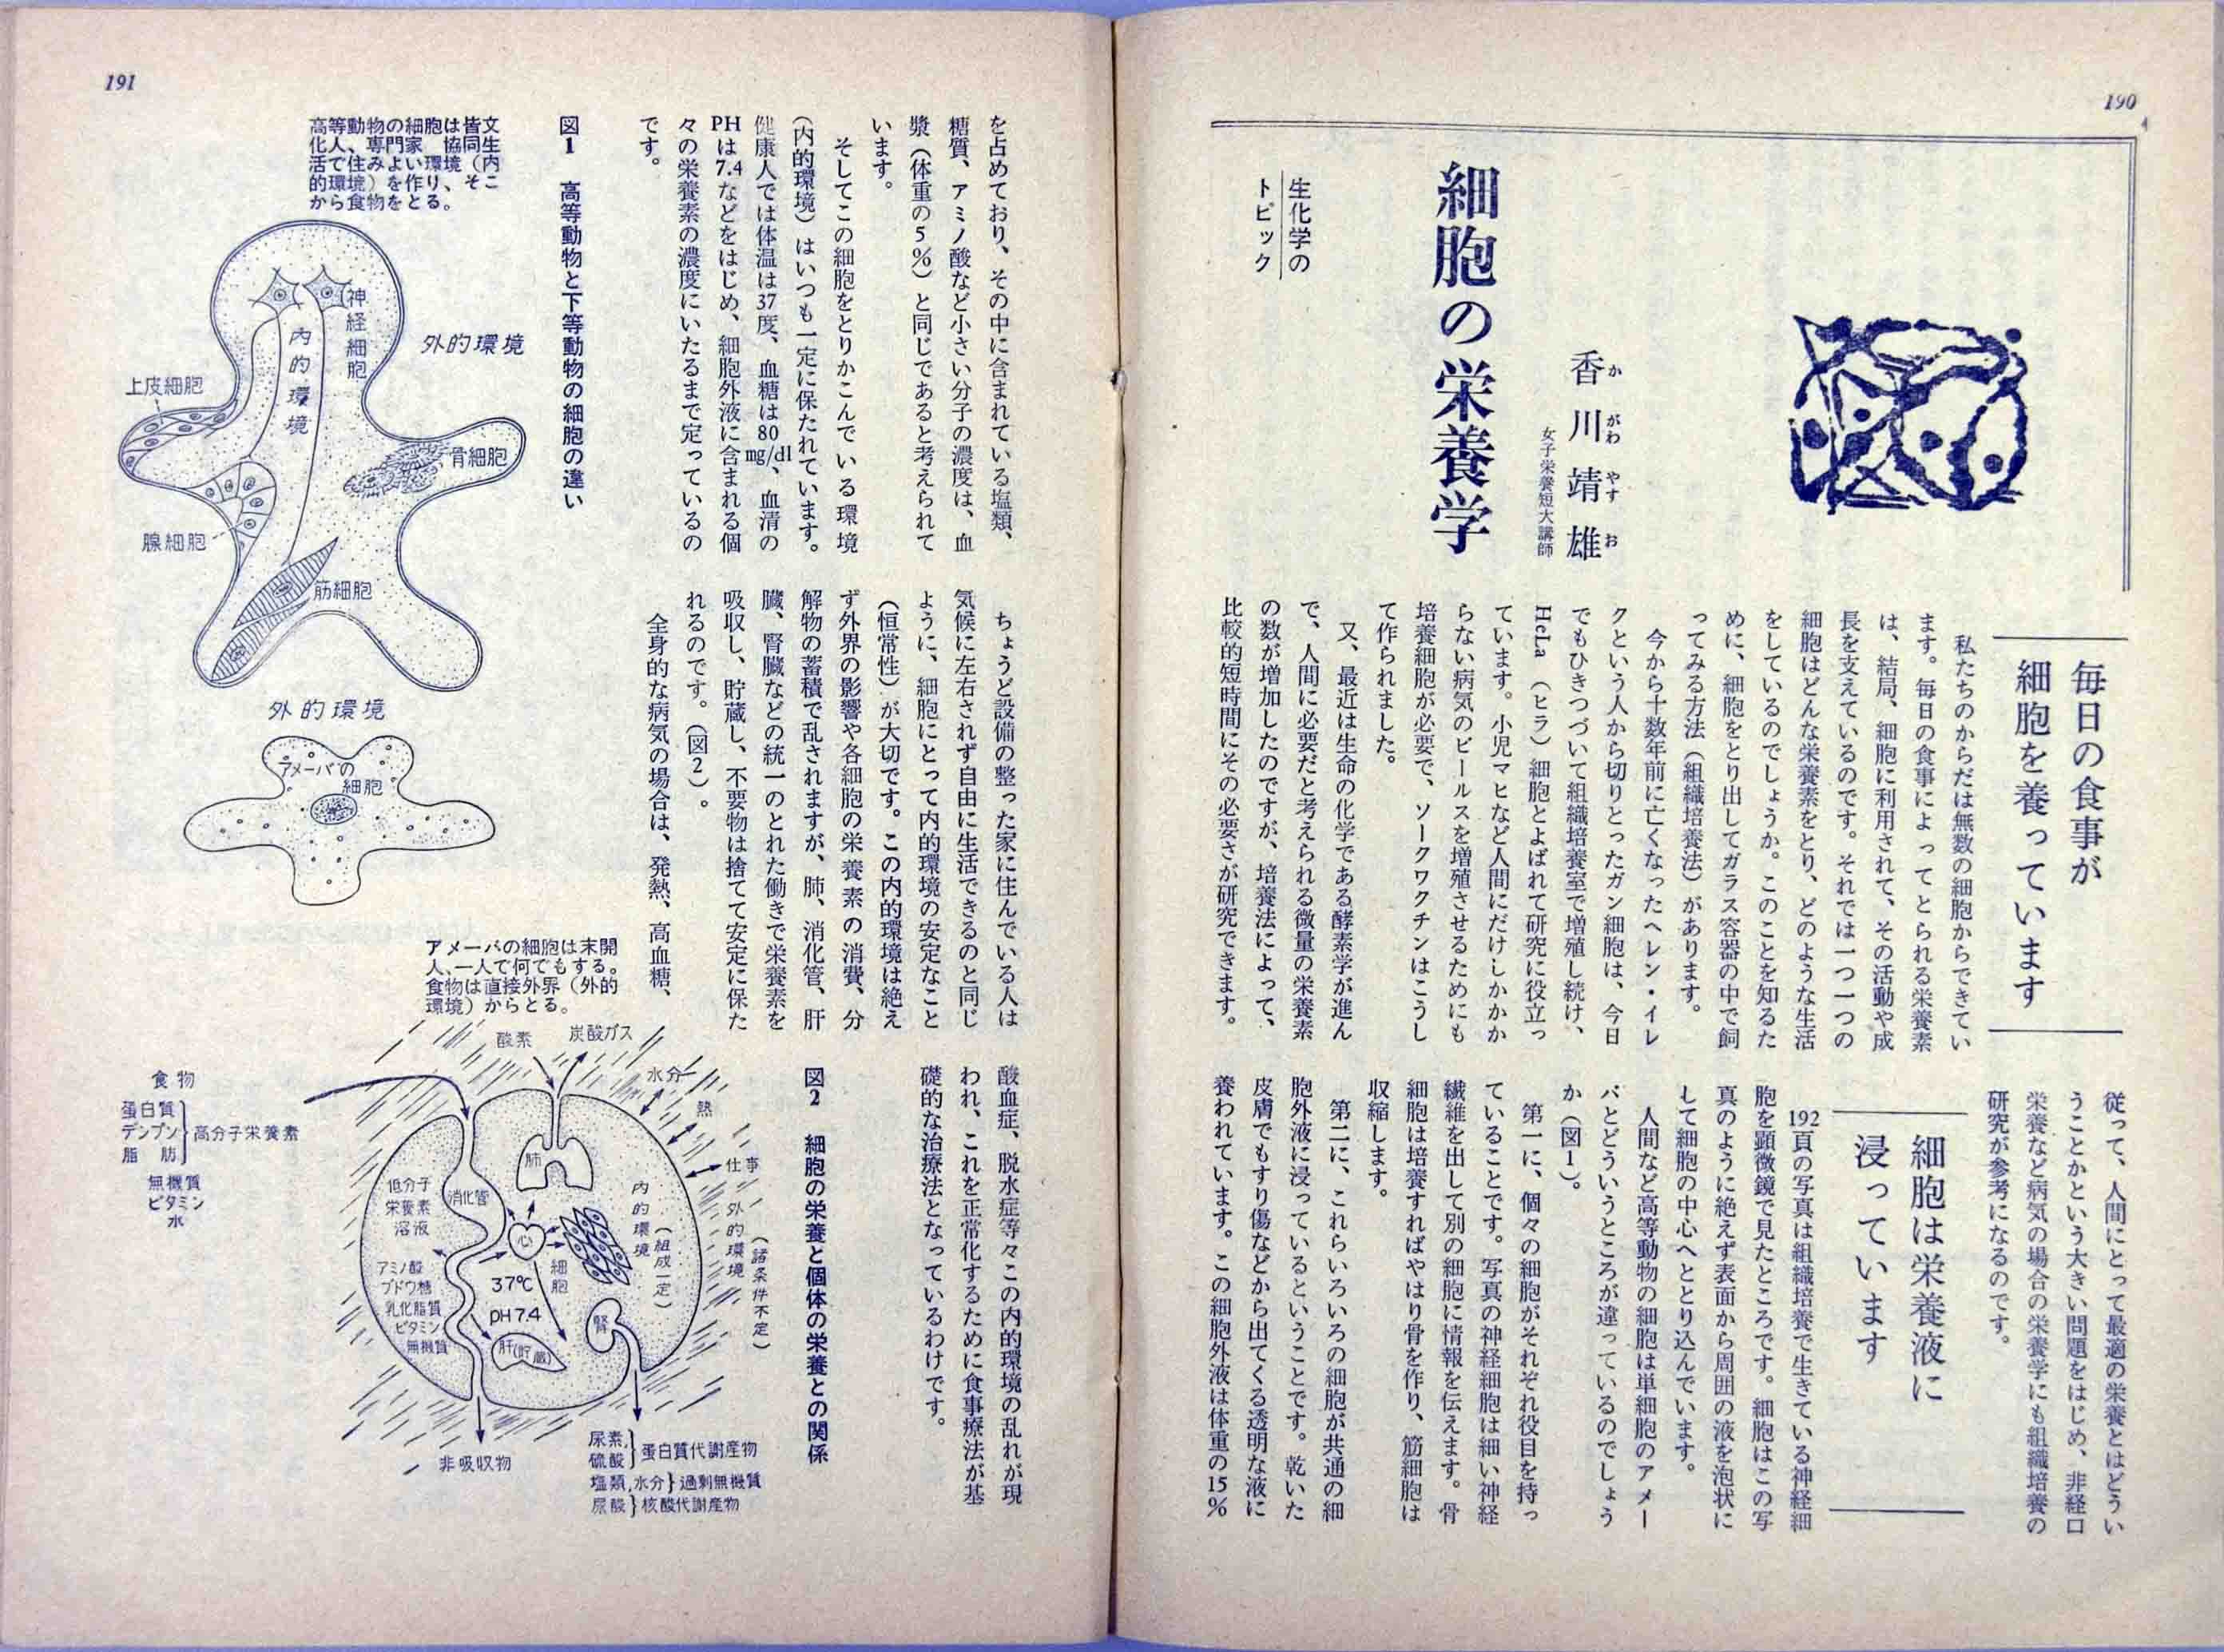 190
生化学の
トピック
細胞の栄養学
香川靖雄
かがわやすお
女子栄養短大講師
毎日の食事が
細胞を養っています
私たちのからだは無数の細胞からできてい
ます。毎日の食事によってとられる栄養素
は、結局、細胞に利用されて、その活動や成
長を支えているのです。それでは一つ一つの
細胞はどんな栄養素をとり、どのような生活
をしているのでしょうか。このことを知るた
めに、細胞をとり出してガラス容器の中で飼
ってみる方法（組織培養法）があります。
今から十数年前に亡くなったヘレン・イレ
クという人から切りとったガン細胞は、今日
でもひきつづいて組織培養室で増殖し続け、
HeLa（ヒラ）細胞とよばれて研究に役立っ
ています。小児マヒなど人間にだけしかかか
らない病気のビールスを増殖させるためにも
培養細胞が必要で、ソークワクチンはこうし
て作られました。
又、最近は生命の化学である酵素学が進ん
で、人間に必要だと考えられる微量の栄養素
の数が増加したのですが、培養法によって、
比較的短時間にその必要さが研究できます。
従って、人間にとって最適の栄養とはどうい
うことかという大きい問題をはじめ、非経口
栄養など病気の場合の栄養学にも組織培養の
研究が参考になるのです。
細胞は栄養液に
浸っています
192頁の写真は組織培養で生きている神経細
胞を顕微鏡で見たところです。細胞はこの写
真のように絶えず表面から周囲の液を泡状に
して細胞の中心へととり込んでいます。
人間など高等動物の細胞は単細胞のアメー
バとどういうところが違っているのでしょう
か（図1）。
第一に、個々の細胞がそれぞれ役目を持っ
ていることです。写真の神経細胞は細い神経
繊維を出して別の細胞に情報を伝えます。骨
細胞は培養すればやはり骨を作り、筋細胞は
収縮します。
第二に、これらいろいろの細胞が共通の細
胞外液に浸っているということです。乾いた
皮膚でもすり傷などから出てくる透明な液に
養われています。この細胞外液は体重の15％
191
を占めており、その中に含まれている塩類、
糖質、アミノ酸など小さい分子の濃度は、血
漿（体重の5％）と同じであると考えられて
います。
そしてこの細胞をとりかこんでいる環境
（内的環境）はいつも一定に保たれています。
健康人では体温は37度、血糖は80mg/dl、血清の
PHは7.4などをはじめ、細胞外液に含まれる個
々の栄養素の濃度にいたるまで定っているの
です。
図1　高等動物と下等動物の細胞の違い
高等動物の細胞は皆文
化人、専門家　協同生
活で住みよい環境（内
的環境）を作り、そこ
から食物をとる。
神経細胞
内的環境
外的環境
上皮細胞
骨細胞
腺細胞
筋細胞
外的環境
アメーバの
細胞
アメーバの細胞は未開
人、一人で何でもする。
食物は直接外界（外的
環境）からとる。
ちょうど設備の整った家に住んでいる人は
気候に左右されず自由に生活できるのと同じ
ように、細胞にとって内的環境の安定なこと
（恒常性）が大切です。この内的環境は絶え
ず外界の影響や各細胞の栄養素の消費、分
解物の蓄積で乱されますが、肺、消化管、肝
臓、腎臓などの統一のとれた働きで栄養素を
吸収し、貯蔵し、不要物は捨てて安定に保た
れるのです。（図2）。
全身的な病気の場合は、発熱、高血糖、
酸血症、脱水症等々この内的環境の乱れが現
われ、これを正常化するために食事療法が基
礎的な治療法となっているわけです。
図2　細胞の栄養と個体の栄養との関係
酸素
炭酸ガス
水分
熱
仕事
外的環境（諸条件不定）
内的環境（組成一定）
食物
蛋白質
デンプン
脂肪
高分子栄養素
無機質
ビタミン
水
肺
消化管
心
細胞
37℃
pH7.4
肝（貯蔵）
腎
低分子
栄養素
溶液
アミノ酸
ブドウ糖
乳化脂質
ビタミン
無機質
非吸収物
尿素、
硫酸
蛋白質代謝産物
塩類,水分}過剰無機質
尿酸}核酸代謝産物